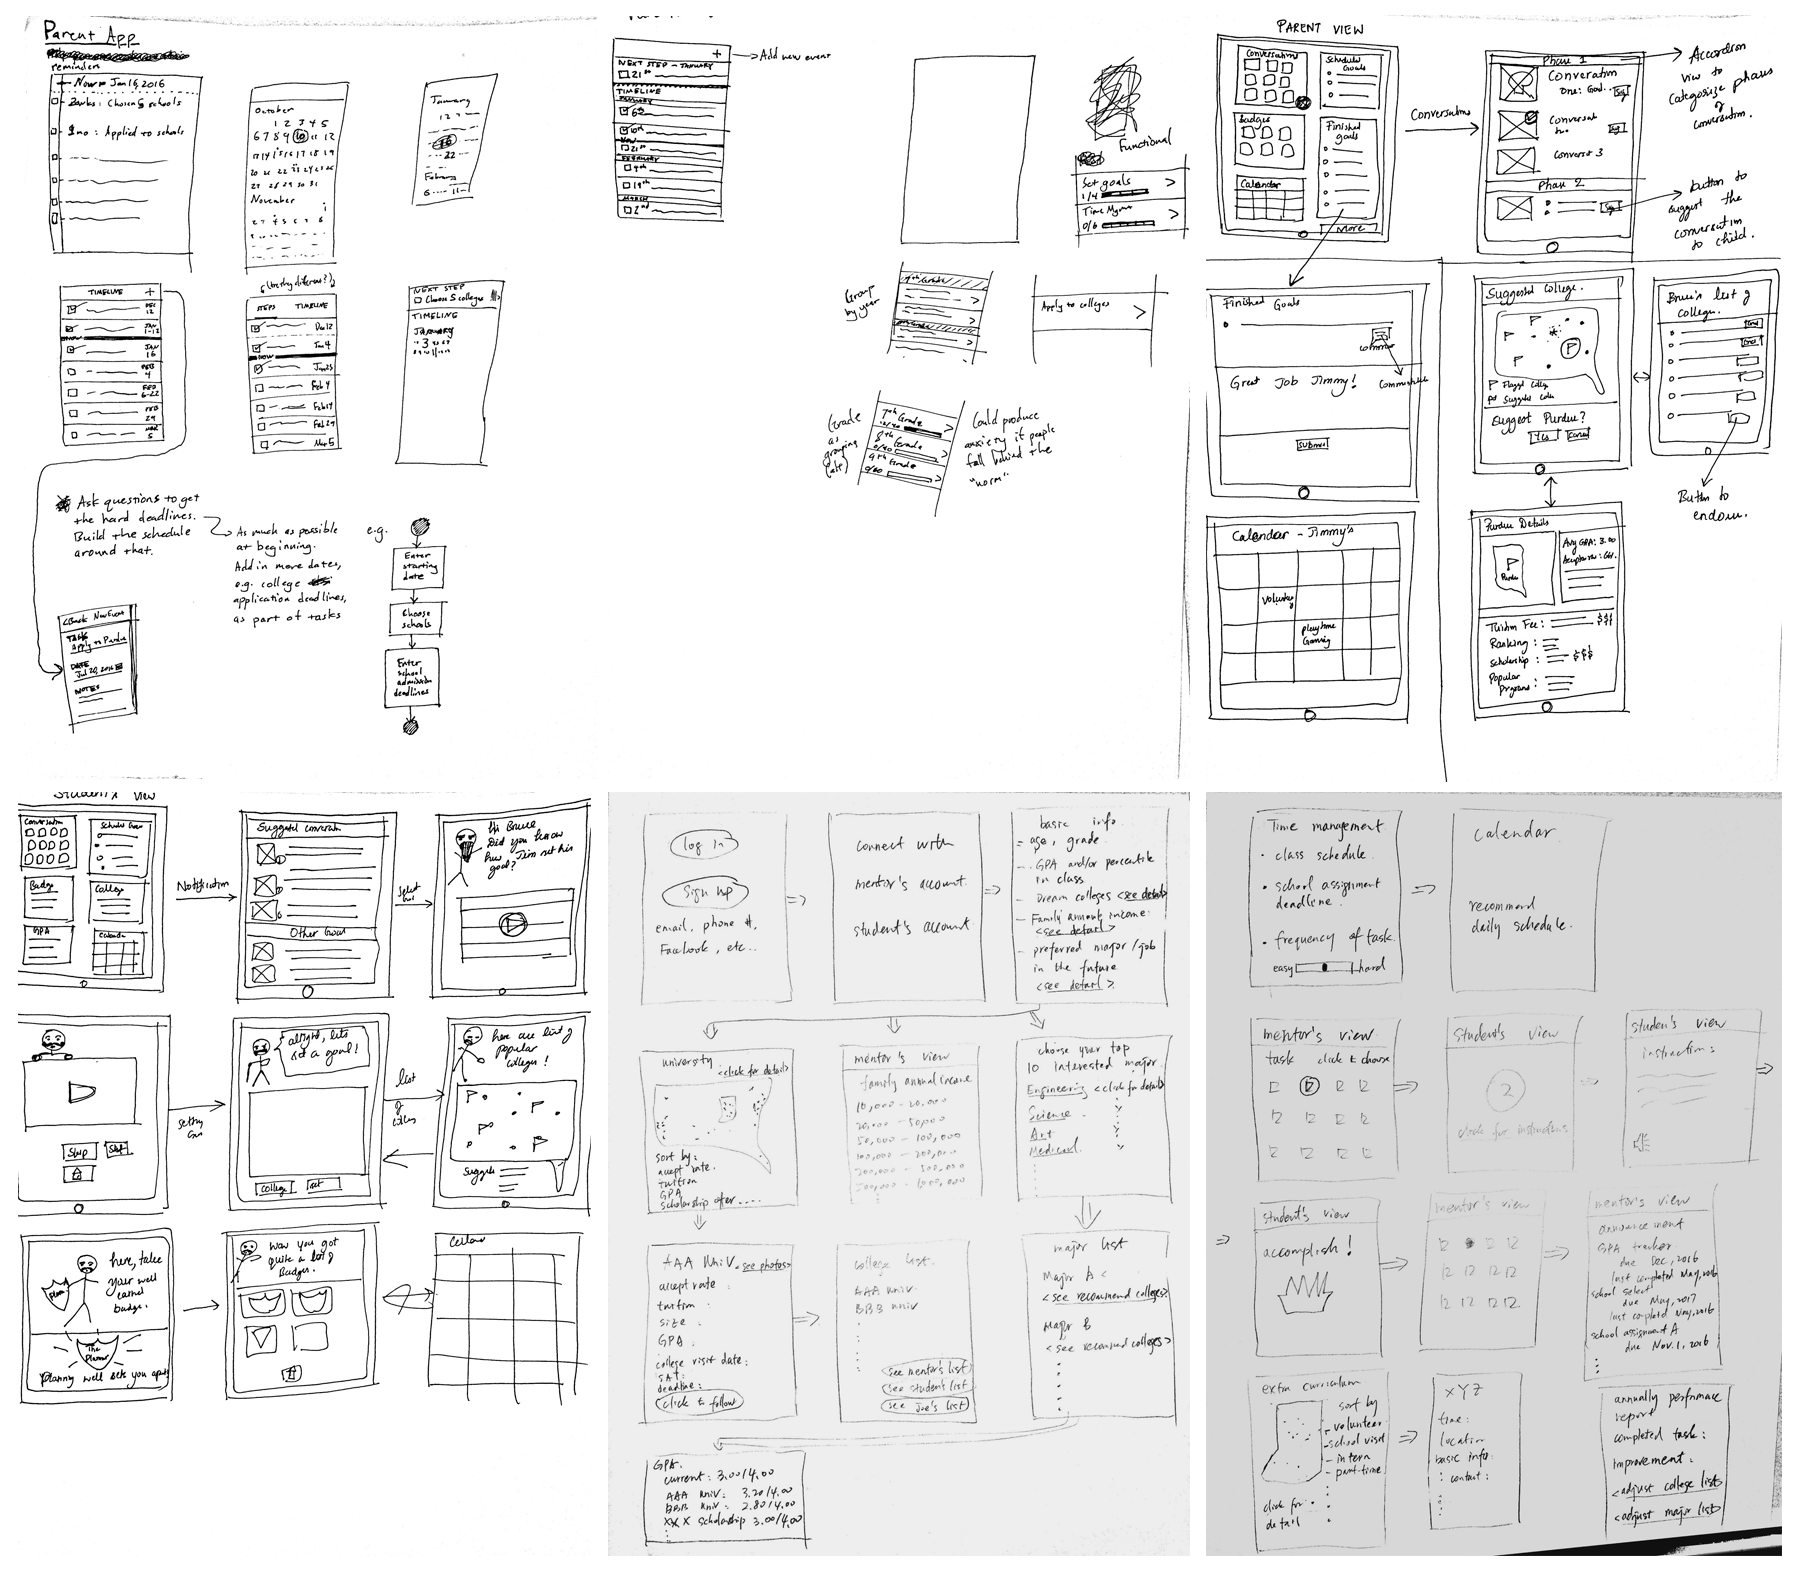 Parent App
reminders
Now = Jan 16, 2016
: Chosen 5 schools
: Applied to schools
October
1 2 3 4 5
6 7 8 9 10 11 12
13 14 15 16 17 18 19
November
January
February
TIMELINE +
DEC
12
JAN
1-12
NOW
JAN
16
FEB
4
FEB
6-22
FEB
29
MAR
5
STEPS TIMELINE
Dec 12
Jan 4
NOW
Jan 25
Feb 4
Feb 14
Feb 29
Mar 5
NEXT STEP
Choose 5 colleges
TIMELINE
JANUARY
Ask questions to get
the hard deadlines.
Build the schedule
around that.
As much as possible
at beginning.
Add in more dates,
e.g. college
application deadlines,
as part of tasks
e.g.
Enter
starting
date
Choose
schools
Enter
school
admission
deadlines
<Back New Event
TASK
Apply to Purdue
DATE
Jul 20, 2016
NOTES
+
Add new event
NEXT STEP - JANUARY
21st
TIMELINE
JANUARY
6th
10th
NOW
21st
FEBRUARY
9th
19th
MARCH
2nd
Functional
Set goals >
1/4
Time Mgmt >
0/6
Group
by year
7th Grade
Apply to colleges >
Grade
as
grouping
(alt)
7th Grade
8th Grade
9th Grade
0/60
Could produce
anxiety if people
fall behind the
"norm"
PARENT VIEW
Conversation
Schedule
Goals
Badges
Finished
goals
Calendar
More
Conversations
Phase 1
Conversation
One: Goal..
Conversat
two
Convers 3
Phase 2
Accordion
view to
categorize phases
of
conversation.
button to
suggest the
conversation
to child.
Finished Goals
Great Job Jimmy!
Submit
Suggested College.
Flagged College
Suggest Purdue?
Yes Cancel
Bruce's list of
colleges.
Button to
endorse.
Calendar - Jimmy's
Volunteer
playtime
Gaming
Purdue Details
Purdue
Avg GPA: 3.00
Tuition Fee: $$$
Ranking:
Scholarship: $$$
Popular
Programs:
Student's View
Conversation
Badge
College
GPA
Calendar
Notification
Suggested Conversation
Other Goal
select
Hi Bruce
Did you know
how Jim set his
goal?
Skip
setting
Goal
alright, lets
set a goal!
College
set
list
of
colleges
here are list of
popular
colleges!
Suggest
here, take
your well
earned
badge.
The
Planner
planning well sets you apart
wow you got
quite a lot of
Badges.
log in
sign up
email, phone #,
Facebook, etc...
connect with
mentor's account.
student's account
basic info.
- age, grade.
- GPA and/or percentile
in class
- Dream colleges <see detail>
- Family annual income:
<see detail>
- preferred major/job
in the future
<see detail>
university
<click for detail>
sort by:
accept rate.
tuition
GPA
scholarship offer ....
mentor's view
family annual income
10,000 - 20,000
20,000 - 50,000
50,000 - 100,000
100,000 - 200,000
choose your top
10 interested major.
Engineering <click for detail>
Science
Art
Medical
AAA Univ. <see photos>
accept rate
tuition :
size :
GPA :
college visit date:
SAT:
deadline:
click to follow
college list.
AAA univ.
BBB univ
see mentor's list
see student's list
see Joe's list
major list
Major A <
<see recommend colleges>
Major B
<see recommend colleges>
GPA.
current: 3.00/4.00
AAA Univ: 3.20/4.00
BBB Univ: 2.80/4.00
XXX scholarship 3.00/4.00
Time management
• class schedule.
• school assignment
deadline.
• frequency of task.
easy hard
Calendar
recommend
daily schedule.
mentor's view.
task click to choose
student's view
click for instructions.
student's view
instructions
student's view
accomplish!
mentor's view
mentor's view
announcement
GPA tracker
due Dec, 2016
last completed May, 2016
school select
due May, 2017
last completed May, 2016
school assignment A
due Nov. 1, 2016
extra curriculum
sort by
- volunteer
- school visit
- intern
- part-time
click for
detail
XYZ
time:
location
basic info:
contact:
annually performance
report
completed task:
improvement:
<adjust college list>
<adjust major list>